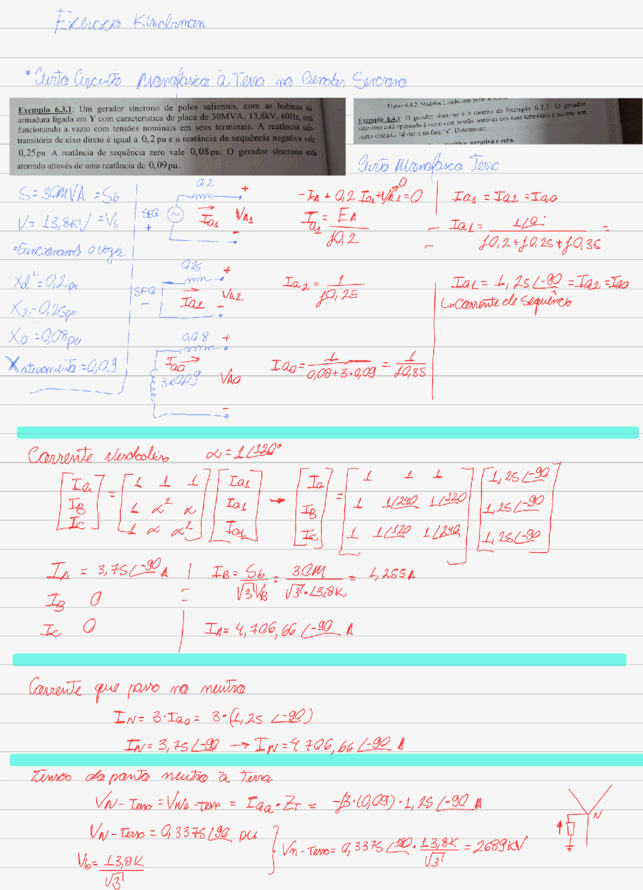 Exercicio Kinderman
• Curto Circuito monofasico à Terra no Gerador Sincrono
Exemplo 6.3.1: Um gerador síncrono de polos salientes, com as bobinas da
armadura ligada em Y com característica de placa de 30MVA, 13,8kV, 60Hz, está
funcionando à vazio com tensões nominais em seus terminais. A reatância sub-
transitória de eixo direto é igual a 0,2 pu e a reatância de sequência negativa vale
0,25pu. A reatância de sequência zero vale 0,08pu. O gerador síncrono está
aterrado através de uma reatância de 0,09pu.
Exemplo 6.4.1 O gerador síncrono é o mesmo do Exemplo 6.3.1. O gerador
síncrono está operando à vazio com tensão nominal em seus terminais e ocorre um
Curto Monofasico Terra
S = 30MVA = Sb
V = 13,8KV = Vb
• Funcionando a vazio
Xd" = 0,2pu
X2 = 0,25pu
X0 = 0,08pu
Xaterramento = 0,09
SEQ +
0,2
Ia1
+
VA1
-
SEQ -
0,25
Ia2
+
VA2
-
0,08
Ia0
3x0,09
+
VA0
-
-IA + 0,2 Ia1 + VA1 = 0
0
Ia1 = EA / j0,2
Ia2 = 1 / j0,25
Ia0 = 1 / 0,08+3·0,09 = 1 / j0,35
Ia1 = Ia2 = Ia0
Ia1 = 1∠0 / j0,2 + j0,25 + j0,35 =
Ia1 = 1,25∠-90 = Ia2 = Ia0
↳ Corrente de Sequência
Corrente Verdadeira α = 1∠120°
[Ia IB Ic] = [1 1 1; 1 α² α; 1 α α²] [Ia1 Ia1 Ia1] → [Ia IB Ic] = [1 1 1; 1 1∠240 1∠120; 1 1∠120 1∠240] [1,25∠-90 1,25∠-90 1,25∠-90]
IA = 3,75∠-90 A
IB 0
Ic 0
IB = Sb / √3 VB = 30M / √3·13,8K = 1,255A
IA = 4,706,66∠-90 A
Corrente que passa no neutro
IN = 3·Ia0 = 3·(1,25∠-90)
IN = 3,75∠-90 → IN = 4706,66∠-90 A
Tensão do ponto neutro à terra
VN-Terra = VN0-terra = Iaa·ZT = -j3·(0,09)·1,25∠-90 A
VN-Terra = 0,3375∠90 pu
Vb = 13,8K / √3
VN-Terra = 0,3375∠90 · 13,8K / √3 = 2689KV
N